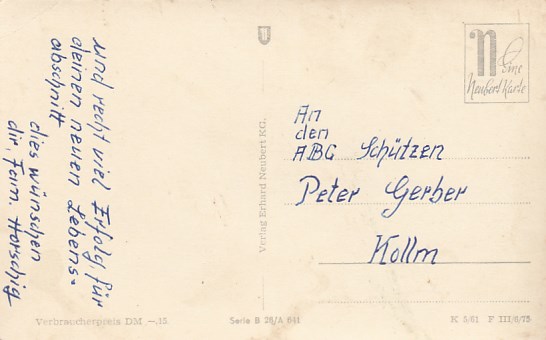 und recht viel Erfolg für
deinen neuen Lebens-
abschnitt
dies wünschen
dir, Fam. Horschig
Verbraucherpreis DM —,15
Verlag Erhard Neubert KG.
Serie B 26/A 641
N
Eine
Neubert Karte
An
den
ABC Schützen
Peter Gerber
Kollm
K 5/61 F III/8/75